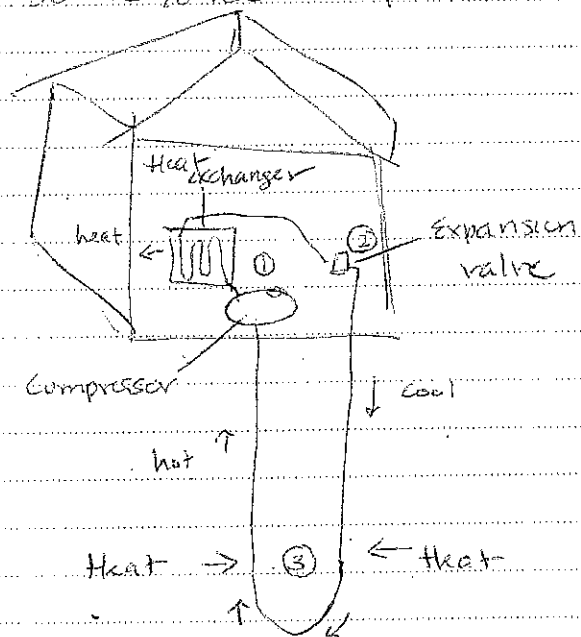 Heat
exchanger
heat ←
①
②
Expansion
valve
Compressor
↓ cool
hot ↑
Heat →
③
← Heat